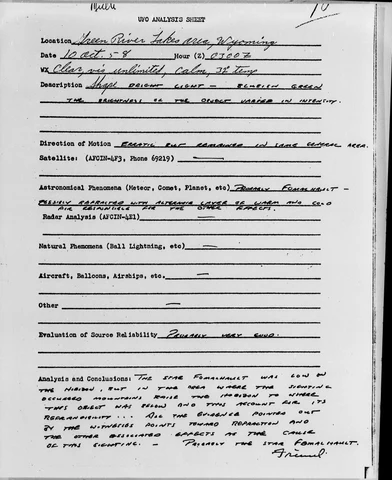 10
UFO ANALYSIS SHEET
Location Green River Lakes area, Wyoming
Date 10 Oct. 58 Hour (Z) 0300Z
WX Clear, vis unlimited, Calm, 32° temp
Description Shape BRIGHT LIGHT - BLUEISH GREEN
THE BRIGHTNESS OF THE OBJECT VARIED IN INTENSITY.
Direction of Motion ERRATIC BUT REMAINED IN SAME GENERAL AREA.
Satellite: (AFCIN-4F3, Phone 69219) —
Astronomical Phenomena (Meteor, Comet, Planet, etc) PROBABLY FOMALHAULT -
REFRACTED WITH ALTERNATE LAYER OF WARM AND COLD
AIR RESPONSIBLE FOR THE OTHER EFFECTS.
Radar Analysis (AFCIN-4E1) —
Natural Phenomena (Ball Lightning, etc) —
Aircraft, Balloons, Airships, etc. —
Other —
Evaluation of Source Reliability PROBABLY VERY GOOD.
Analysis and Conclusions: THE STAR FOMALHAULT WAS LOW ON
THE HORIZON, BUT IN THE AREA WHERE THE SIGHTING
OCCURED MOUNTAINS RAISE THE HORIZON TO WHERE
THIS OBJECT WAS BELOW AND THIS ACCOUNT FOR ITS
... ALL THE EVIDENCE POINTED OUT
BY THE WITNESSES POINTS TOWARD REFRACTION AND
THE OTHER ASSOCIATED EFFECTS AS THE CAUSE
OF THIS SIGHTING. - PROBABLY THE STAR FOMALHAULT.